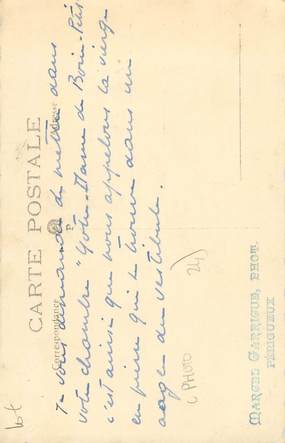 CARTE POSTALE
Correspondance
Adresse
Je vous demande de mettre dans
votre chambre "Notre-Dame de Bon
c'est ainsi que nous appelons la vierge
en pierre qui se trouve dans un
du vestibule.
MARCEL GARRIGUE, PHOT.
PÉRIGUEUX
PHOTO
24)
lot